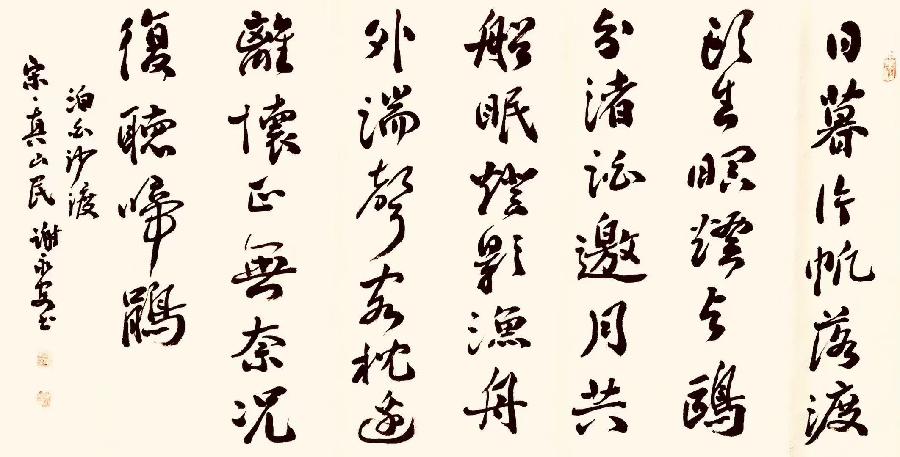 日暮片帆落渡
頭生暝煙与鷗
分渚泊邀月共
船眠燈影漁舟
外湍聲客枕邊
離懷正無奈况
復聽啼鵑
泊白沙渡
宋·真山民 謝永安书